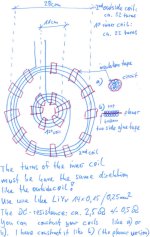 28cm
2nd outside coil:
ca. 32 turns
11cm
1st inner coil:
ca. 22 turns
insulation tape
a)
closet
b)
closer
two side glue tape
1st coil
The turns of the inner coil
must be have the same direction
like the outside coil!
Use wire like LiYv 14×0,15 / 0,25mm²
The DC-resistance: ca. 2,5Ω +/- 0,5Ω
You can construct your coils like a) or
b). I have construct it like b) (the planar version)